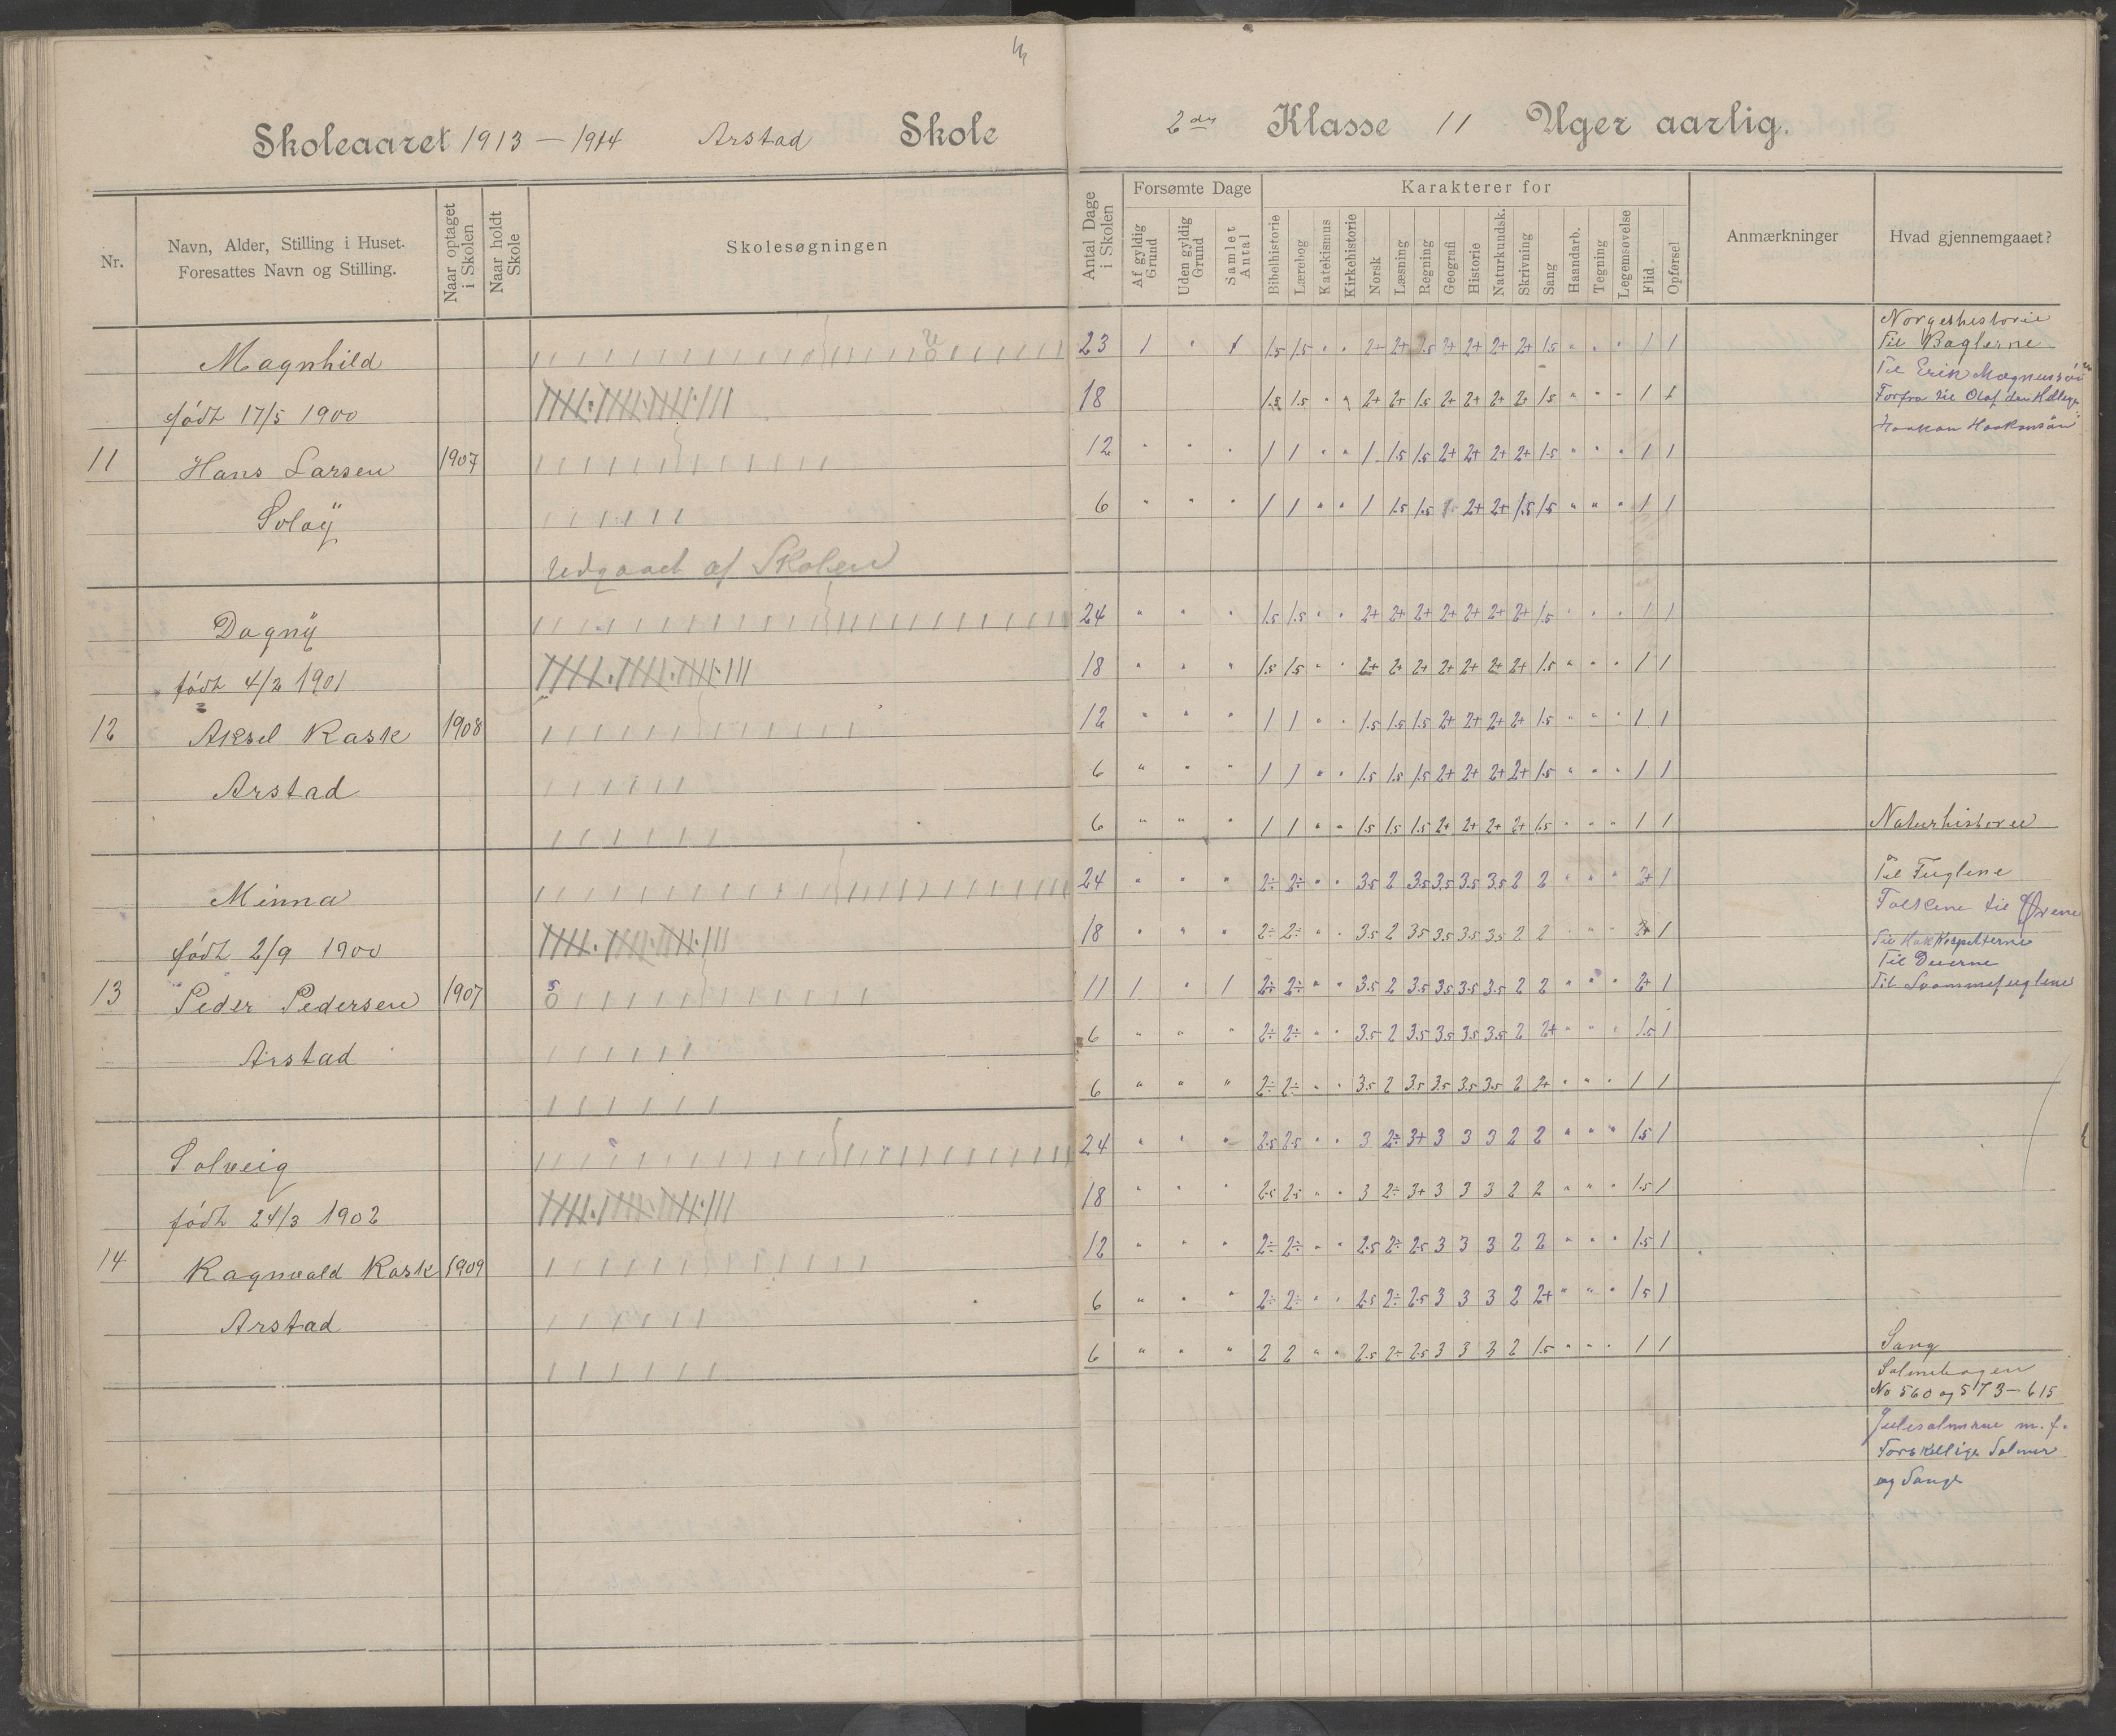 Skoleaaret 1913 – 1914 Arstad Skole
2den Klasse 11 Uger aarlig.
Nr.
Navn, Alder, Stilling i Huset.
Foresattes Navn og Stilling.
Naar optaget i Skolen
Naar holdt Skole
Skolesøgningen
Antal Dage i Skolen
Forsømte Dage
Af gyldig Grund
Uden gyldig Grund
Samlet Antal
Karakterer for
Bibelhistorie
Lærebog
Katekismus
Kirkehistorie
Norsk
Læsning
Regning
Geografi
Historie
Naturkundsk.
Skrivning
Sang
Haandarb.
Tegning
Legemsøvelse
Flid
Opførsel
Anmærkninger
Hvad gjennemgaaet?
Magnhild
født 17/5 1900
11 Hans Larsen 1907
Soløÿ
Udgaaet af Skolen
23 1 " 1 1.5 1.5 " " 2+ 2+ 1.5 2+ 2+ 2+ 2+ 1.5 " " " 1 1
18 1.5 1.5 " " 2+ 2+ 1.5 2+ 2+ 2+ 2+ 1.5 " " " 1 1
12 " " " 1 1 " " 1 1.5 1.5 2+ 2+ 2+ 2+ 1.5 " " " 1 1
6 " " " 1 1 " " 1 1.5 1.5 2+ 2+ 1.5 1.5 " " " 1 1
Norgeshistorie
Til Baglerne
Til Erik Magnussøn
Forfra til Olaf den Hellige
Haakon Haakonsøn
Dagnÿ
født 4/2 1901
12 Aksel Rask 1908
Arstad
24 " " " 1.5 1.5 " " 2+ 2+ 2+ 2+ 2+ 2+ 2+ 1.5 " " " 1 1
18 " " " 1.5 1.5 " " 2+ 2+ 2+ 2+ 2+ 2+ 2+ 1.5 " " " 1 1
12 " " " 1 1 " " 1.5 1.5 1.5 2+ 2+ 2+ 2+ 1.5 " " " 1 1
6 " " " 1 1 " " 1.5 1.5 1.5 2+ 2+ 2+ 2+ 1.5 " " " 1 1
6 " " " 1 1 " " 1.5 1.5 1.5 2+ 2+ 2+ 2+ 1.5 " " " 1 1
Naturhistorie
Minna
født 2/9 1900
13 Peder Pedersen 1907
Arstad
24 " " " 2÷ 2÷ " " 3.5 2 3.5 3.5 3.5 3.5 2 2 " " " 2+ 1
18 " " " 2÷ 2÷ " " 3.5 2 3.5 3.5 3.5 3.5 2 2 " " " 2+ 1
11 1 " 1 2÷ 2÷ " " 3.5 2 3.5 3.5 3.5 3.5 2 2 " " " 2+ 1
6 " " " 2÷ 2÷ " " 3.5 2 3.5 3.5 3.5 3.5 2 2+ " " " 1.5 1
6 " " " 2÷ 2÷ " " 3.5 2 3.5 3.5 3.5 3.5 2 2+ " " " 1 1
Til Fuglene
til
Til
Til Duerne
Til Svømmefuglene
Solveig
født 24/3 1902
14 Ragnvald Rask 1909
Arstad
24 " " " 2.5 2.5 " " 3 2÷ 3+ 3 3 3 2 2 " " " 1.5 1
18 " " " 2.5 2.5 " " 3 2÷ 3+ 3 3 3 2 2 " " " 1.5 1
12 " " " 2÷ 2÷ " " 2.5 2÷ 2.5 3 3 3 2 2 " " " 1.5 1
6 " " " 2÷ 2÷ " " 2.5 2÷ 2.5 3 3 3 2 2+ " " " 1.5 1
6 " " " 2 2 " " 2.5 2÷ 2.5 3 3 3 2 1.5 " " " 1 1
Sang
Salmebogen
No 560 og 573–615
Julesalmene m. f.
Forskellige Salmer
og Sange